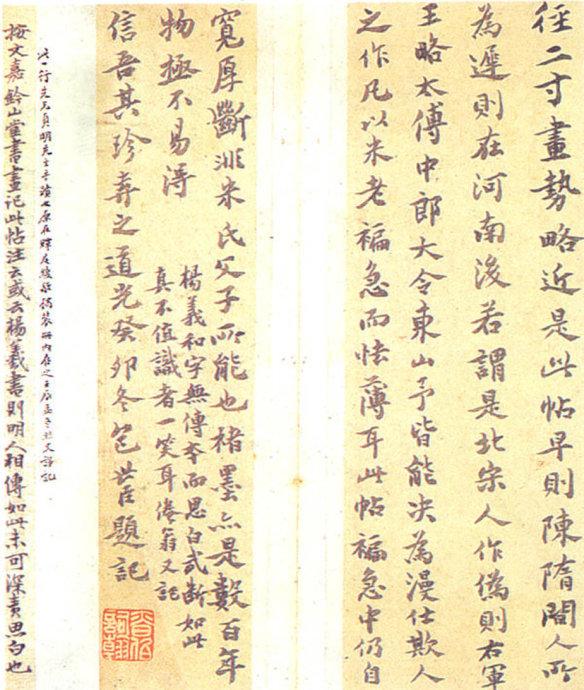 徑二寸畫勢略近是此帖早則陳隋間人所
為遲則在河南後若謂是北宋人作偽則右軍
王略太傅中郎大令東山予皆能决為漫仕欺人
之作凡以米老褊急而怯薄耳此帖褊急中仍自
寬厚斷非米氏父子所能也楮墨亦是數百年
物極不易得
楊羲和字無傳本而思白武斷如此
真不值識者一笑耳倦翁又記
信吾其珍弆之道光癸卯冬包世臣題記
此一行先明先生手蹟也原在
按文嘉鈐山堂書畫記此帖注云或云楊羲書則明人相傳如此未可深責思白也